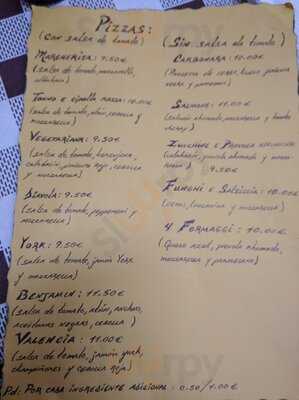 Pizzas:
(con salsa de tomate)
Margherita: 7.50€
(salsa de tomate, mozzarella,
Tonno e cipolla rossa: 10.00€
(salsa de tomate, atún, cebolla y
mozzarella)
Vegetariana: 9.50€
(salsa de tomate, berenjena,
calabacín, pimiento rojo, cebolla
y mozzarella)
Diavola: 9.50€
(salsa de tomate, pepperoni y
mozzarella)
York: 9.50€
(salsa de tomate, jamón York
y mozzarella)
Benjamin: 11.50€
(salsa de tomate, atún,
aceitunas negras, cebolla)
Valencia: 11.00€
(salsa de tomate, jamón york,
champiñones y cebolla roja)
(Sin salsa de tomate)
Carbonara: 10.00€
(Panceta de cerdo, huevo,
y
Salmone: 11.00€
(salmón ahumado, mozzarella y
Zucchine e Provola
(calabacín, provola ahumada y
9.50€
Funghi e Salsiccia: 10.00€
y mozzarella)
4 Formaggi: 10.00€
(Queso azul, provola ahumada,
mozzarella y parmesano)
P.d: Por cada ingrediente adicional: 0.50/1.00€